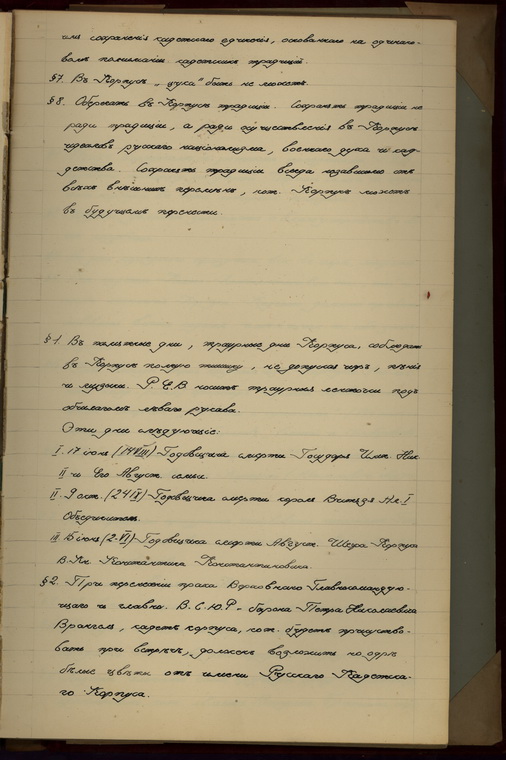 для сохраненія кадетскаго единенія, основаннаго на одинако-
вомъ пониманіи кадетскихъ традицій.
§7. Въ Корпусѣ „цука“ быть не можетъ.
§8. Оберегать въ Корпусѣ традиціи. Сохранять традиціи не
ради традиціи, а ради осуществленія въ Корпусѣ
идеаловъ русскаго націонализма, военнаго духа и кад-
детства. Сохранять традиціи всегда независимо отъ
всѣхъ внѣшнихъ перемѣнъ, кот. Корпусъ можетъ
въ будущемъ перенести.
§1. Въ памятные дни, траурные дни Корпуса, соблюдать
въ Корпусѣ полную тишину, не допуская игръ, пѣнія
и музыки. Р.С.В носить траурныя ленточки подъ
обшлагомъ лѣваго рукава.
Эти дни слѣдующіе:
I. 17 іюля (4 VII) Годовщина смерти Государя Имп. Ник
II и Его Август. семьи.
II. 9 окт. (24 IX) Годовщина смерти короля Витязя Ал. I
Объединителя.
III 15 іюня (2. VI) Годовщина смерти Август. Шефа Корпуса
В. Кн. Константина Константиновича.
§2. При перенесеніи праха Верховнаго Главнокомандую-
щаго и главнк. В.С.Ю.Р. - барона Петра Николаевича
Врангеля, кадетъ корпуса, кот. будетъ присутство-
вать при встрѣчѣ, долженъ возложить на гробъ
бѣлые цвѣты отъ имени Русскаго Кадетска-
го Корпуса.